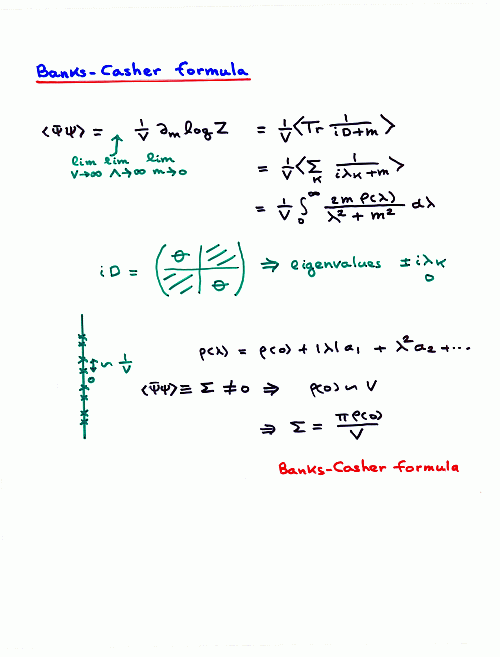 Banks-Casher formula
⟨Ψ̄Ψ⟩ = 1/V ∂m log Z = 1/V ⟨Tr 1/(iD+m)⟩
lim lim lim
V→∞ Λ→∞ m→0
= 1/V ⟨Σ_K 1/(iλ_K+m)⟩
= 1/V ∫_0^∞ 2m ρ(λ)/(λ² + m²) dλ
iD = ( θ θ ) ⇒ eigenvalues ± iλ_K
0
ρ(λ) = ρ(0) + |λ| a₁ + λ² a₂ + ...
0 ~ 1/V
⟨Ψ̄Ψ⟩ ≡ Σ ≠ 0 ⇒ ρ(0) ~ V
⇒ Σ = πρ(0)/V
Banks-Casher formula